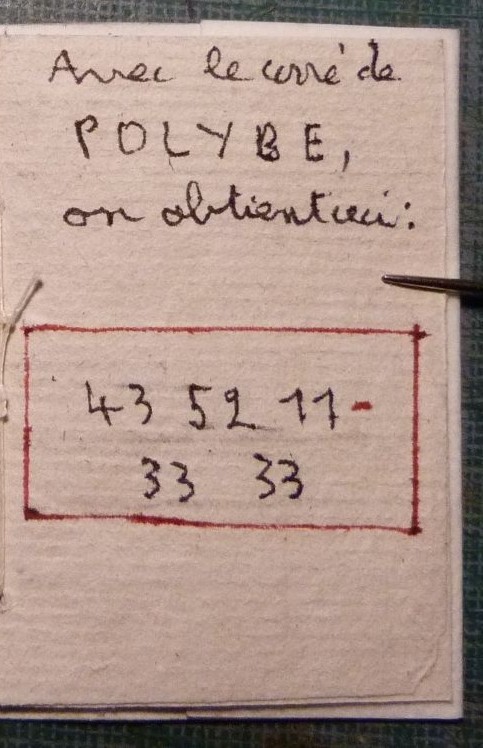 Avec le carré de
POLYBE,
on obtient ceci :
43 52 11-
33 33